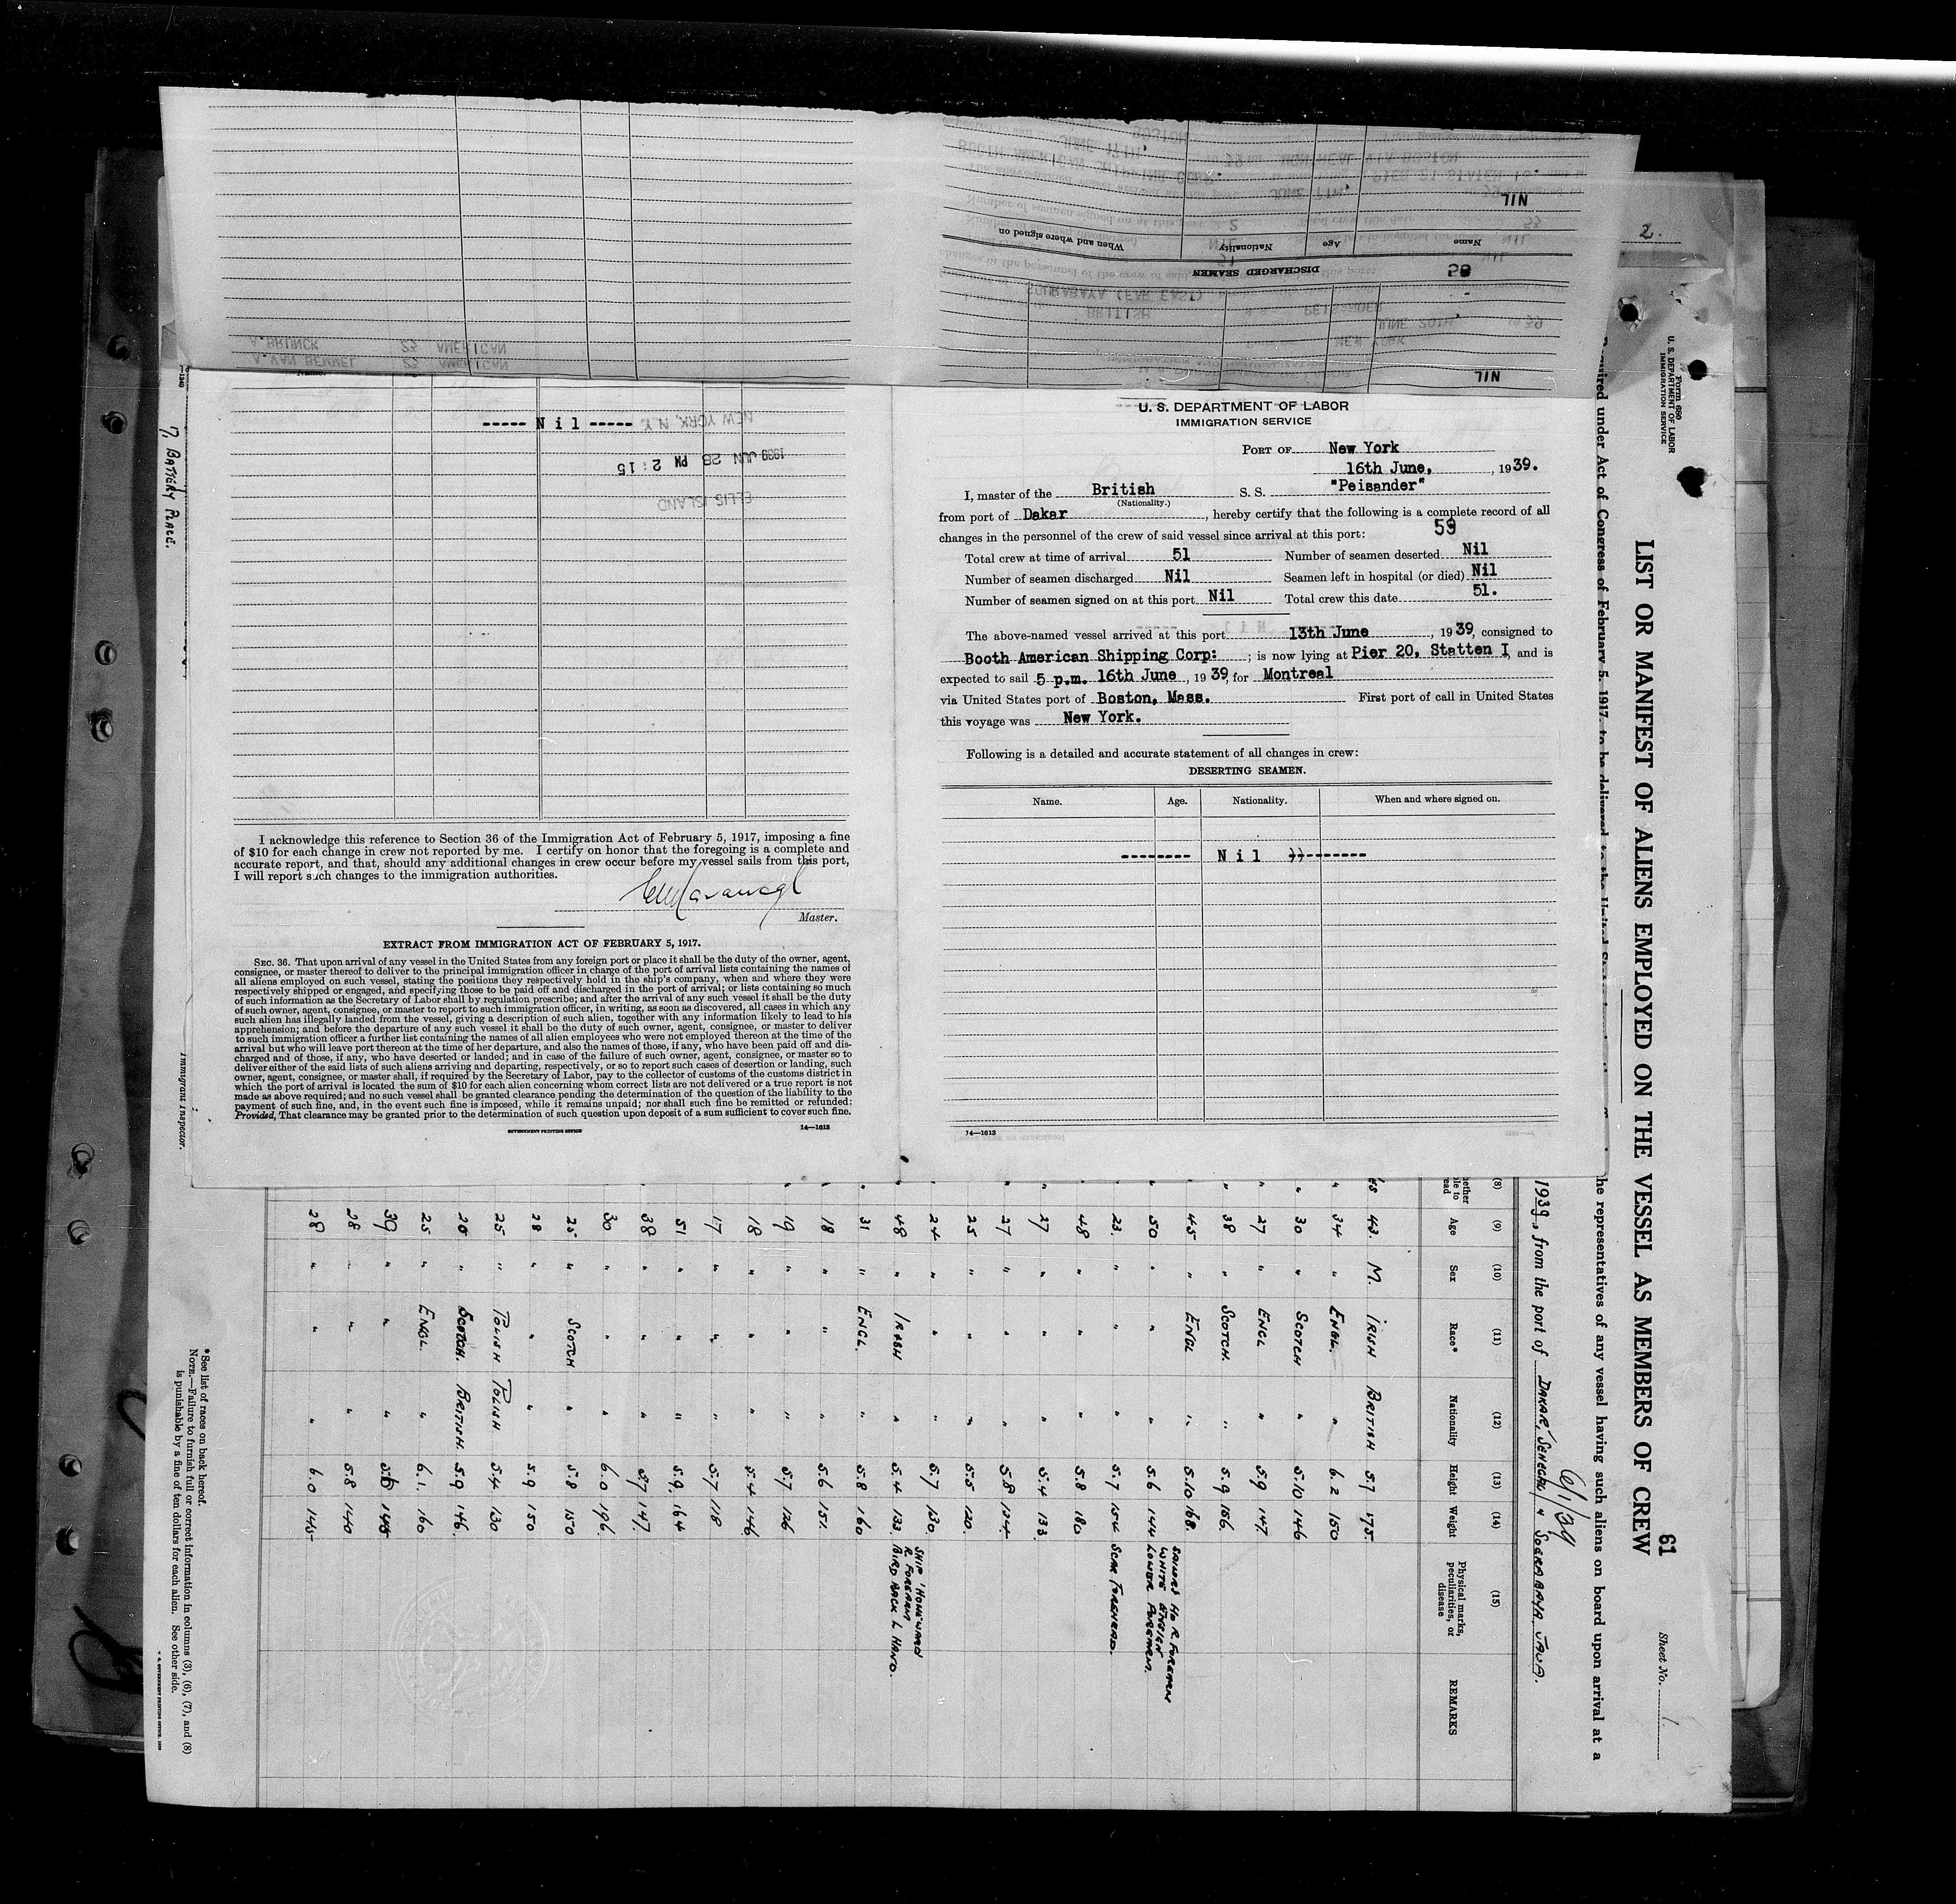 2.
Form 680
U. S. DEPARTMENT OF LABOR
IMMIGRATION SERVICE
61
Sheet No. 1.
LIST OR MANIFEST OF ALIENS EMPLOYED ON THE VESSEL AS MEMBERS OF CREW
under Act of Congress of February 5, 1917, to be delivered to the United
representatives of any vessel having such aliens on board upon arrival at a
6/1/39
1939, from the port of DAKAR, SENEGAL & SOERABAYA JAVA.
DISCHARGED SEAMEN
Name Age Nationality When and where signed on
NIL
58
NIL
A. BRUNCK 23 AMERICAN
A. VAN BEMMEL 23 AMERICAN
17, BATTERY PLACE.
----- Nil -----
NEW YORK, N.Y.
1939 JUN 28 PM 2:15
ELLIS ISLAND
I acknowledge this reference to Section 36 of the Immigration Act of February 5, 1917, imposing a fine
of $10 for each change in crew not reported by me. I certify on honor that the foregoing is a complete and
accurate report, and that, should any additional changes in crew occur before my vessel sails from this port,
I will report such changes to the immigration authorities.
Master.
EXTRACT FROM IMMIGRATION ACT OF FEBRUARY 5, 1917.
SEC. 36. That upon arrival of any vessel in the United States from any foreign port or place it shall be the duty of the owner, agent,
consignee, or master thereof to deliver to the principal immigration officer in charge of the port of arrival lists containing the names of
all aliens employed on such vessel, stating the positions they respectively hold in the ship's company, when and where they were
respectively shipped or engaged, and specifying those to be paid off and discharged in the port of arrival; or lists containing so much
of such information as the Secretary of Labor shall by regulation prescribe; and after the arrival of any such vessel it shall be the duty
of such owner, agent, consignee, or master to report to such immigration officer, in writing, as soon as discovered, all cases in which any
such alien has illegally landed from the vessel, giving a description of such alien, together with any information likely to lead to his
apprehension; and before the departure of any such vessel it shall be the duty of such owner, agent, consignee, or master to deliver
to such immigration officer a further list containing the names of all alien employees who were not employed thereon at the time of the
arrival but who will leave port thereon at the time of her departure, and also the names of those, if any, who have been paid off and dis-
charged and of those, if any, who have deserted or landed; and in case of the failure of such owner, agent, consignee, or master so to
deliver either of the said lists of such aliens arriving and departing, respectively, or so to report such cases of desertion or landing, such
owner, agent, consignee, or master shall, if required by the Secretary of Labor, pay to the collector of customs of the customs district in
which the port of arrival is located the sum of $10 for each alien concerning whom correct lists are not delivered or a true report is not
made as above required; and no such vessel shall be granted clearance pending the determination of the question of the liability to the
payment of such fine, and, in the event such fine is imposed, while it remains unpaid; nor shall such fine be remitted or refunded:
Provided, That clearance may be granted prior to the determination of such question upon deposit of a sum sufficient to cover such fine.
GOVERNMENT PRINTING OFFICE 14—1613
U. S. DEPARTMENT OF LABOR
IMMIGRATION SERVICE
PORT OF New York
16th June, , 1939.
I, master of the British S. S. "Peisander"
(Nationality.)
from port of Dakar , hereby certify that the following is a complete record of all
changes in the personnel of the crew of said vessel since arrival at this port: 59
Total crew at time of arrival 51 Number of seamen deserted Nil
Number of seamen discharged Nil Seamen left in hospital (or died) Nil
Number of seamen signed on at this port Nil Total crew this date 51.
The above-named vessel arrived at this port 13th June , 1939, consigned to
Booth American Shipping Corp: ; is now lying at Pier 20, Statten I, and is
expected to sail 5 p.m. 16th June , 1939, for Montreal
via United States port of Boston, Mass. First port of call in United States
this voyage was New York.
Following is a detailed and accurate statement of all changes in crew:
DESERTING SEAMEN.
Name. Age. Nationality. When and where signed on.
-------- Nil --------
14—1613
Immigrant Inspector.
(8) (9) (10) (11) (12) (13) (14) (15)
Age Sex Race* Nationality Height Weight Physical marks, peculiarities, or disease REMARKS
43. M. IRISH BRITISH 5.7 175.
34 " ENGL. " 6.2 150
30 " SCOTCH " 5.10 146
27 " ENGL " 5.9 147.
38 " SCOTCH. " 5.9 156.
45 " ENGL " 5.10 168.
50 " " " 5.6 144
23. " " " 5.7 154 SCAR FOREHEAD.
48 " " " 5.8 180
27 " " " 5.4 133
27 " " " 5.8 124
25 " " " 5.5 120.
24 " " " 5.7 130.
48 " IRISH " 5.4 133. BIRD BACK L HAND.
SHIP 'HOMEWARD
R. FOREARM
31 " ENGL. " 5.8 160
18 " " " 5.6 151.
19 " " " 5.7 126
18 " " " 5.4 146
17 " " " 5.7 118
51 " " " 5.9. 164
38 " " " 5.7 147.
30 " " " 6.0 196.
25 " SCOTCH " 5.8 150
28 " " " 5.9 150
25 " POLISH POLISH 5.4 130
" SCOTCH. BRITISH. 5.9 146.
25 " ENGL. " 6.1. 160
39 " " " 145
28 " " " 5.8 140
28 " " " 6.0 145
*See list of races on back hereof.
NOTE.—Failure to furnish full or correct information in columns (3), (6), (7), and (8)
is punishable by a fine of ten dollars for each alien. See other side.